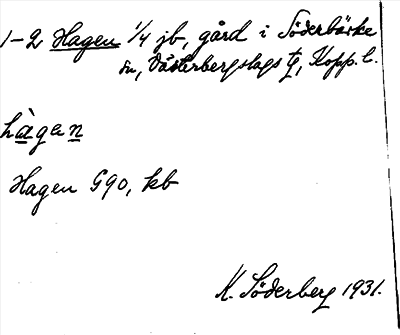 1-2 Hagen 1/4 jb, gård i Söderbärke
sn, Västerbergslags tg, Kopp. l.
hàgen
Hagen G90, kb
K. Söderberg 1931.